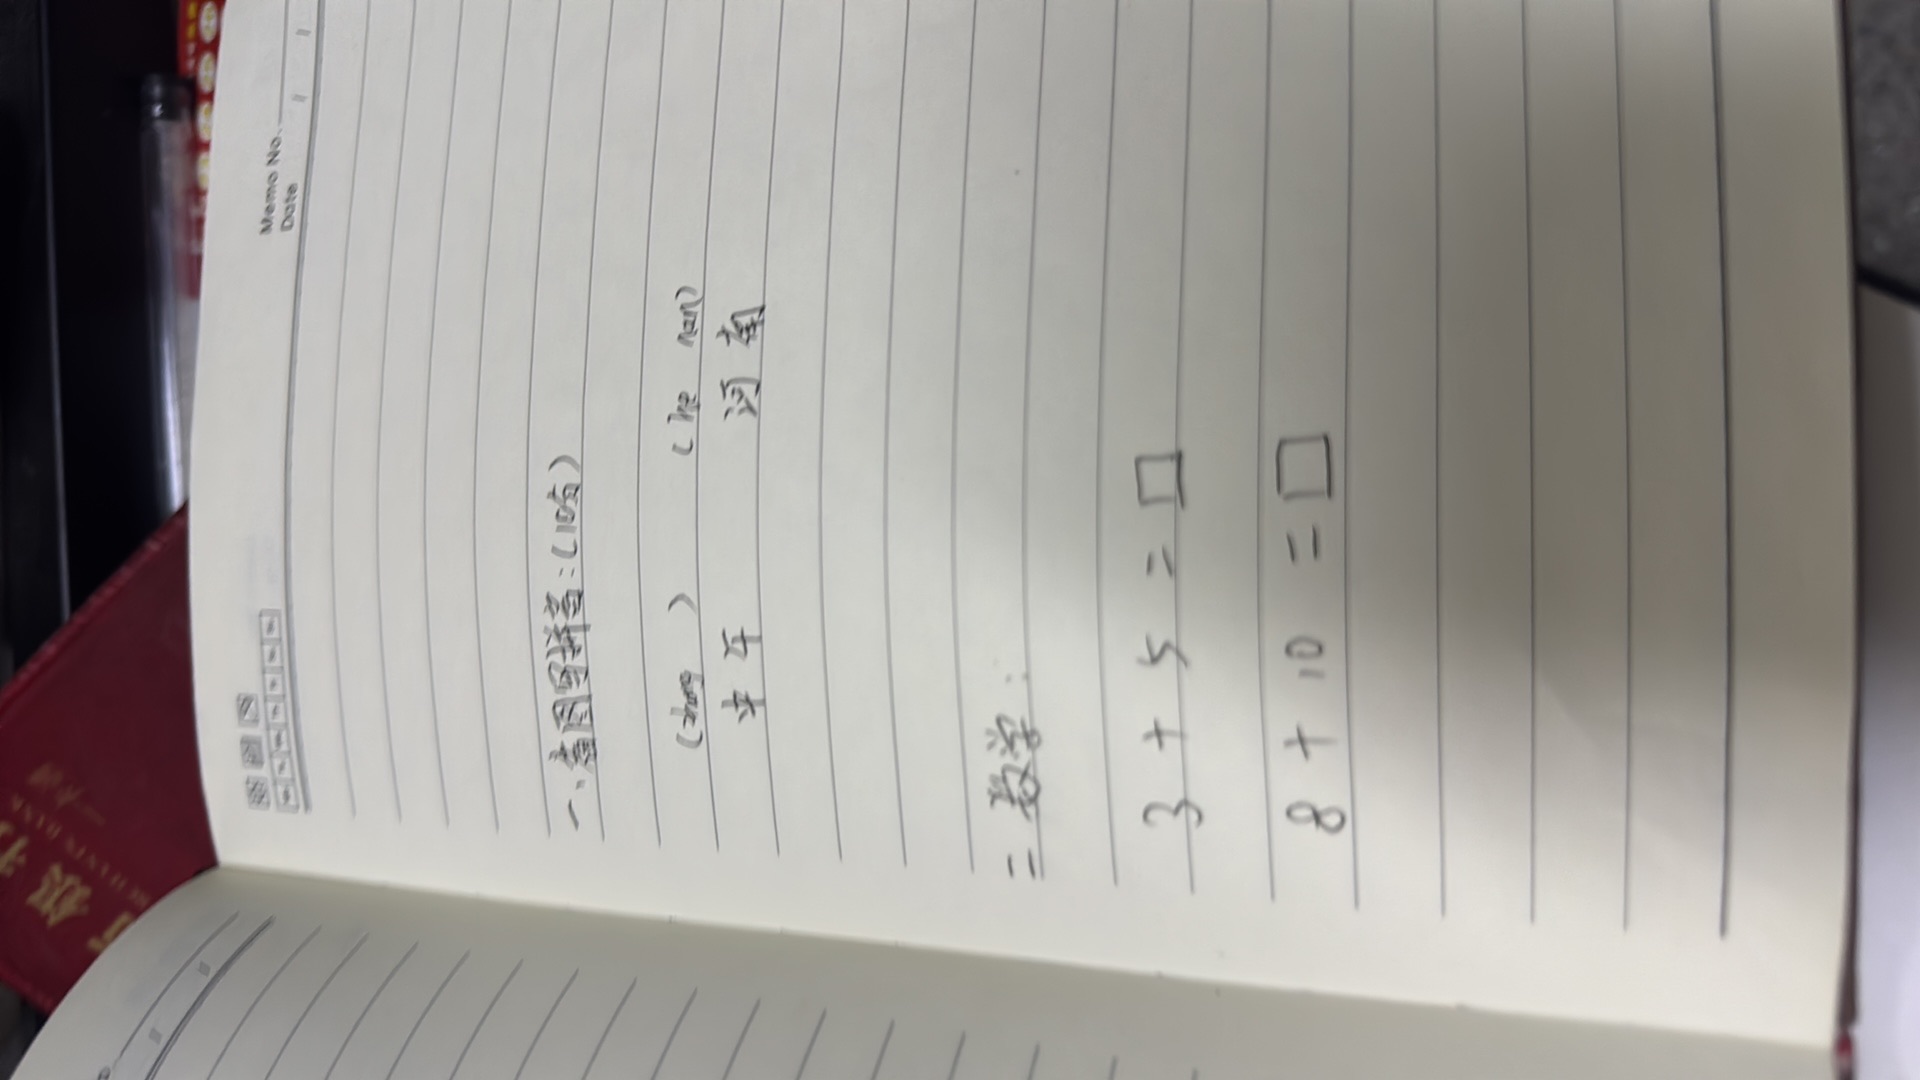 Memo No.
Date
一、看图写拼音:(10分)
(zhong ) (he nan)
中午 河南
二 数学:
3 + 5 = □
8 + 10 = □